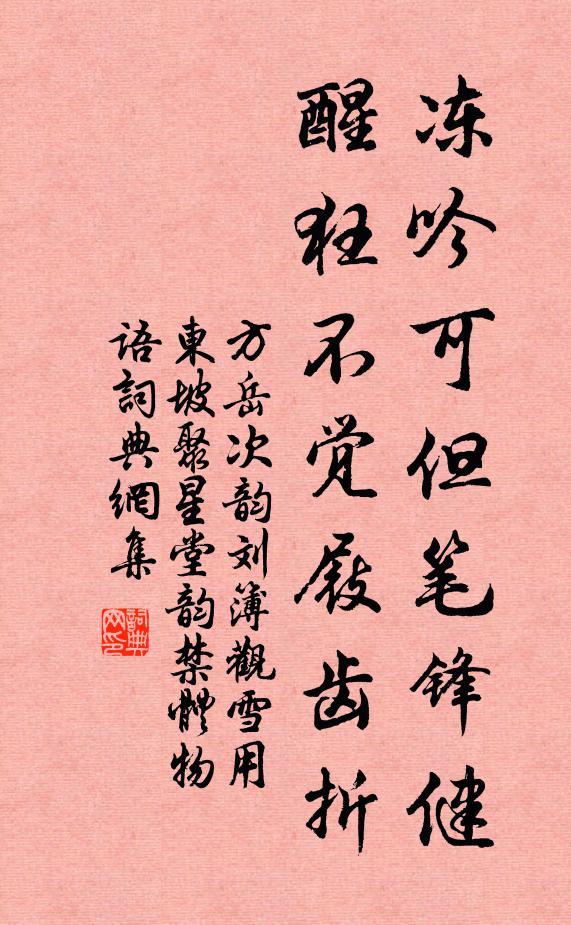 冻吟可但笔锋健
醒狂不觉屐齿折
方岳次韵刘簿觀雪用
東坡聚星堂韵禁體物
语詞典網集
詞典
网印